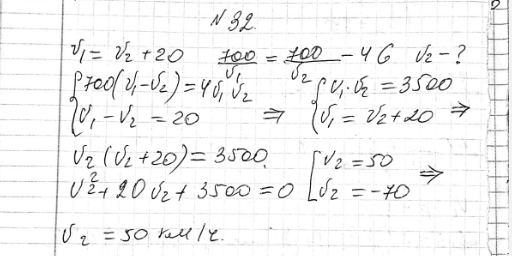 № 32.
v₁ = v₂ + 20   700/v₁ = 700/v₂ − 4   v₂ − ?
{ 700(v₁ − v₂) = 4v₁v₂   { v₁ · v₂ = 3500
{ v₁ − v₂ = 20   ⇒   { v₁ = v₂ + 20   ⇒
v₂(v₂ + 20) = 3500.   [ v₂ = 50
v₂² + 20v₂ + 3500 = 0   [ v₂ = −70   ⇒
v₂ = 50 км/ч.